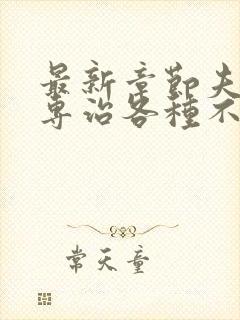 最新章節夫
專治各種不
常天童